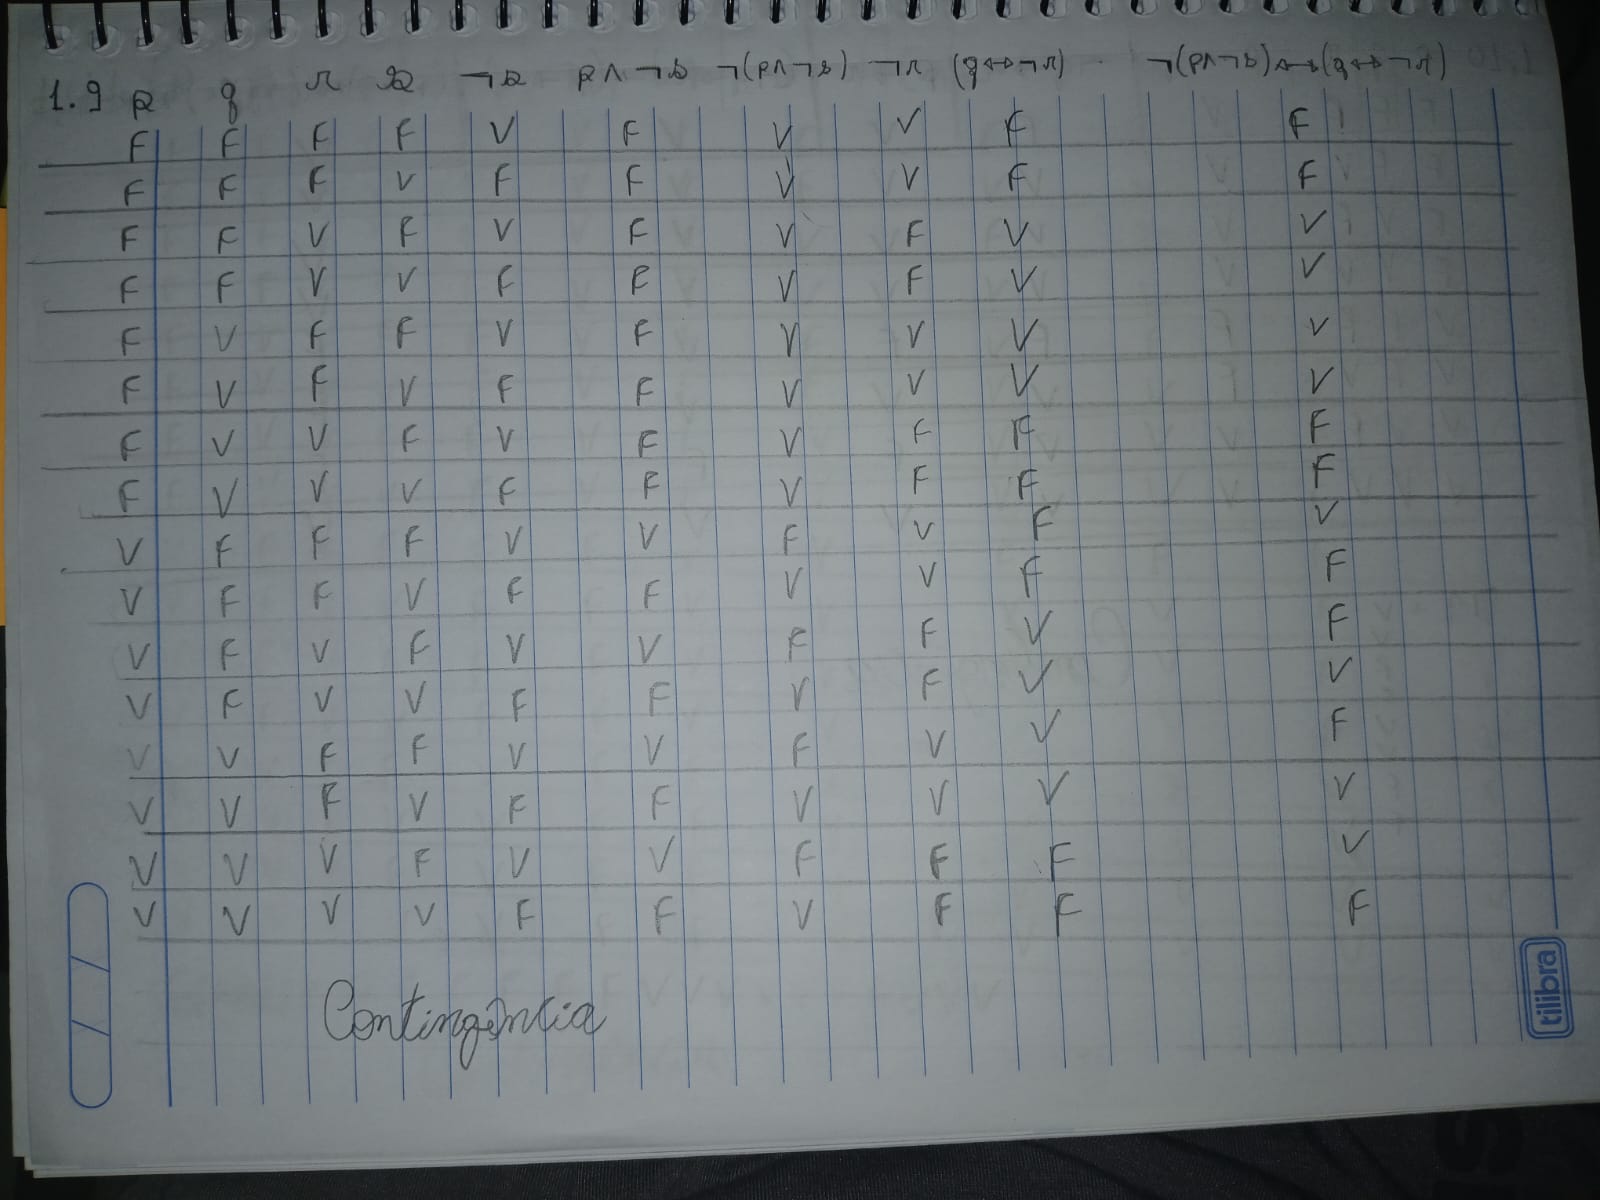 1.9 p q r s ¬s p∧¬s ¬(p∧¬s) ¬r (q↔¬r) ¬(p∧¬s)↔(q↔¬r)
F F F F V F V V F F
F F F V F F V V F F
F F V F V F V F V V
F F V V F F V F V V
F V F F V F V V V V
F V F V F F V V V V
F V V F V F V F F F
F V V V F F V F F F
V F F F V V F V F V
V F F V F F V V F F
V F V F V V F F V F
V F V V F F V F V V
V V F F V V F V V F
V V F V F F V V V V
V V V F V V F F F V
V V V V F F V F F F
Contingência
tilibra